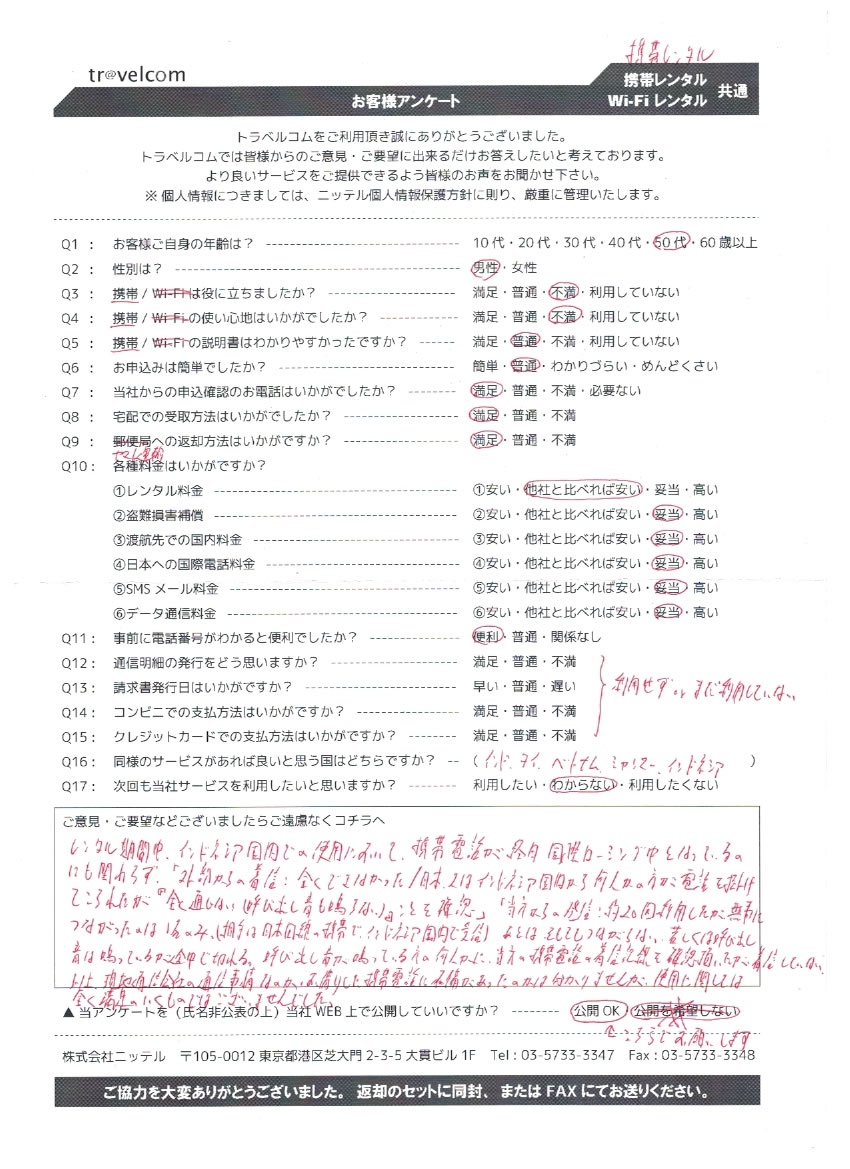 携帯レンタル
tr@velcom
携帯レンタル
お客様アンケート Wi-Fi レンタル 共通
トラベルコムをご利用頂き誠にありがとうございました。
トラベルコムでは皆様からのご意見・ご要望に出来るだけお答えしたいと考えております。
より良いサービスをご提供できるよう皆様のお声をお聞かせ下さい。
※ 個人情報につきましては、ニッテル個人情報保護方針に則り、厳重に管理いたします。
Q1 : お客様ご自身の年齢は? 10代・20代・30代・40代・50代・60歳以上
Q2 : 性別は? 男性・女性
Q3 : 携帯 / Wi-Fiは役に立ちましたか? 満足・普通・不満・利用していない
Q4 : 携帯 / Wi-Fiの使い心地はいかがでしたか? 満足・普通・不満・利用していない
Q5 : 携帯 / Wi-Fiの説明書はわかりやすかったですか? 満足・普通・不満・利用していない
Q6 : お申込みは簡単でしたか? 簡単・普通・わかりづらい・めんどくさい
Q7 : 当社からの申込確認のお電話はいかがでしたか? 満足・普通・不満・必要ない
Q8 : 宅配での受取方法はいかがでしたか? 満足・普通・不満
Q9 : 郵便局への返却方法はいかがですか? 満足・普通・不満
Q10 : 各種料金はいかがですか?
①レンタル料金 ①安い・他社と比べれば安い・妥当・高い
②盗難損害補償 ②安い・他社と比べれば安い・妥当・高い
③渡航先での国内料金 ③安い・他社と比べれば安い・妥当・高い
④日本への国際電話料金 ④安い・他社と比べれば安い・妥当・高い
⑤SMS メール料金 ⑤安い・他社と比べれば安い・妥当・高い
⑥データ通信料金 ⑥安い・他社と比べれば安い・妥当・高い
Q11 : 事前に電話番号がわかると便利でしたか? 便利・普通・関係なし
Q12 : 通信明細の発行をどう思いますか? 満足・普通・不満
Q13 : 請求書発行日はいかがですか? 早い・普通・遅い
利用せず。 まだ利用していない
Q14 : コンビニでの支払方法はいかがですか? 満足・普通・不満
Q15 : クレジットカードでの支払方法はいかがですか? 満足・普通・不満
Q16 : 同様のサービスがあれば良いと思う国はどちらですか? (インド、タイ、ベトナム、ミャンマー、インドネシア)
Q17 : 次回も当社サービスを利用したいと思いますか? 利用したい・わからない・利用したくない
ご意見・ご要望などございましたらご遠慮なくコチラへ
レンタル期間中、インドネシア国内での使用において、携帯電話が 国際ローミング中となっているの
にも関わらず、「外部からの着信：全くできなかった/日本、又はインドネシア国内から何人かの方が電話を掛け
てこられたが『全く通じない(呼び出し音も鳴らない)』ことを確認」「当方からの発信：約20回利用したが無事に
つながったのは1名のみ、(相手は日本回線の携帯で、インドネシア国内で受信) あとはそもそもつながらない、若しくは呼び出し
音は鳴っているが途中で切れる。呼び出し音が鳴っている方の何人かに、当方の携帯電話の着信記録を確認頂いたが着信していない。
以上、現地通信会社の通信事情なのか、お借りした携帯電話に不備があったのかは分かりませんが、使用に関しては
全く満足のいくものではございませんでした。
▲ 当アンケートを(氏名非公表の上)当社 WEB 上で公開していいですか? 公開OK・公開を希望しない
↑こちらでお願いします
株式会社ニッテル 〒105-0012 東京都港区芝大門 2-3-5 大貫ビル 1F Tel : 03-5733-3347 Fax : 03-5733-3348
ご協力を大変ありがとうございました。 返却のセットに同封、または FAX にてお送りください。